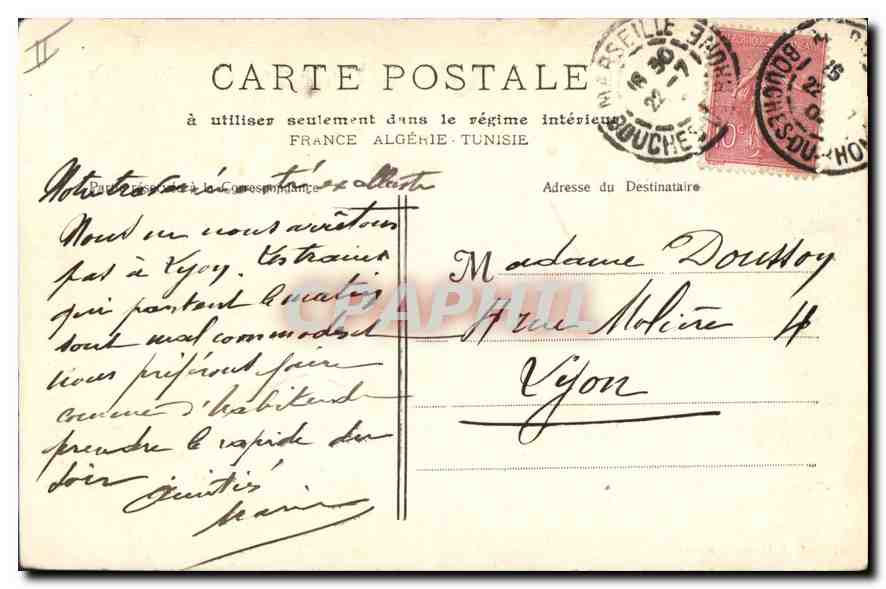 II
CARTE POSTALE
à utiliser seulement dans le régime intérieur
FRANCE ALGÉRIE - TUNISIE
MARSEILLE
BOUCHES-DU-RHONE
16 30
22 - 7
BOUCHES-DU-RHONE
10c
à la Correspondance
Adresse du Destinataire
Notre été
Nous ne nous arrêtons
pas à Lyon. Les trains
qui partent le matin
sont mal commodes et
nous préférons faire
comme d'habitude
prendre le rapide du
soir Amitiés
Marie
Madame Doussoy
4 rue Molière 4
Lyon
CPAPHIL